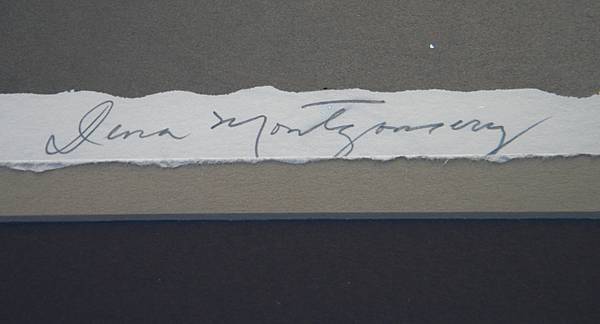 Dena Montgomery